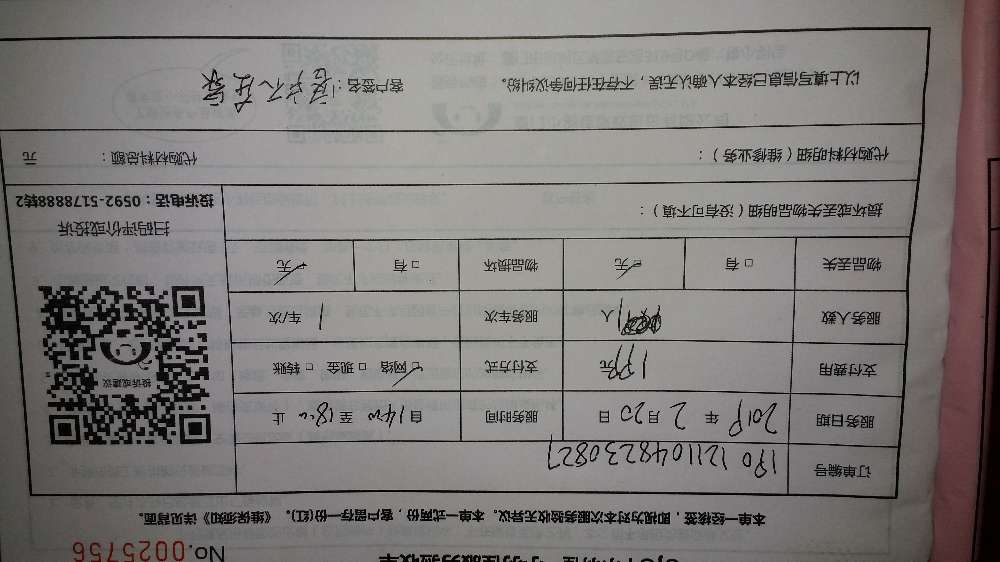 No.0025756
本单一经接签，即视为对本次服务验收无异议。本单一式两份，客户留存一份(红)。《维保须知》详见背面。
订单编号
服务日期 2019 年 2 月 20 日 服务时间 自 1400 至 18:00 止
支付费用 199元 支付方式 □ 网络 □ 现金 □ 转账
服务人数 1人 服务车次 1 车/次
物品丢失 □ 有 □ 无 物品损坏 □ 有 □ 无
投诉或建议
扫码评价或投诉
投诉电话：0592-5178888转2
损坏或丢失物品明细（没有可不填）：
代购材料明细（维修业务）： 代购材料总额： 元
以上填写信息已经本人确认无误，不存在任何争议纠纷。 客户签名：客户不在家